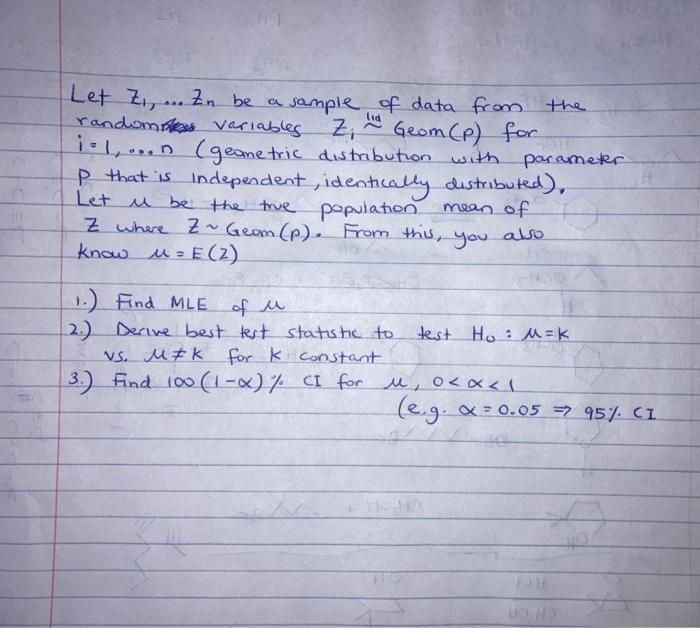 Let Z₁, ... Zn be a sample of data from the
random variables Zᵢ iid~ Geom(p) for
i=1, ... n (geometric distribution with parameter
p that is independent, identically distributed).
Let μ be the true population mean of
Z where Z ~ Geom(p). From this, you also
know μ = E(Z)
1.) Find MLE of μ
2.) Derive best test statistic to test H₀ : μ=K
vs. μ≠K for K constant
3.) Find 100(1-α)% CI for μ, 0<α<1
(e.g. α=0.05 ⇒ 95% CI